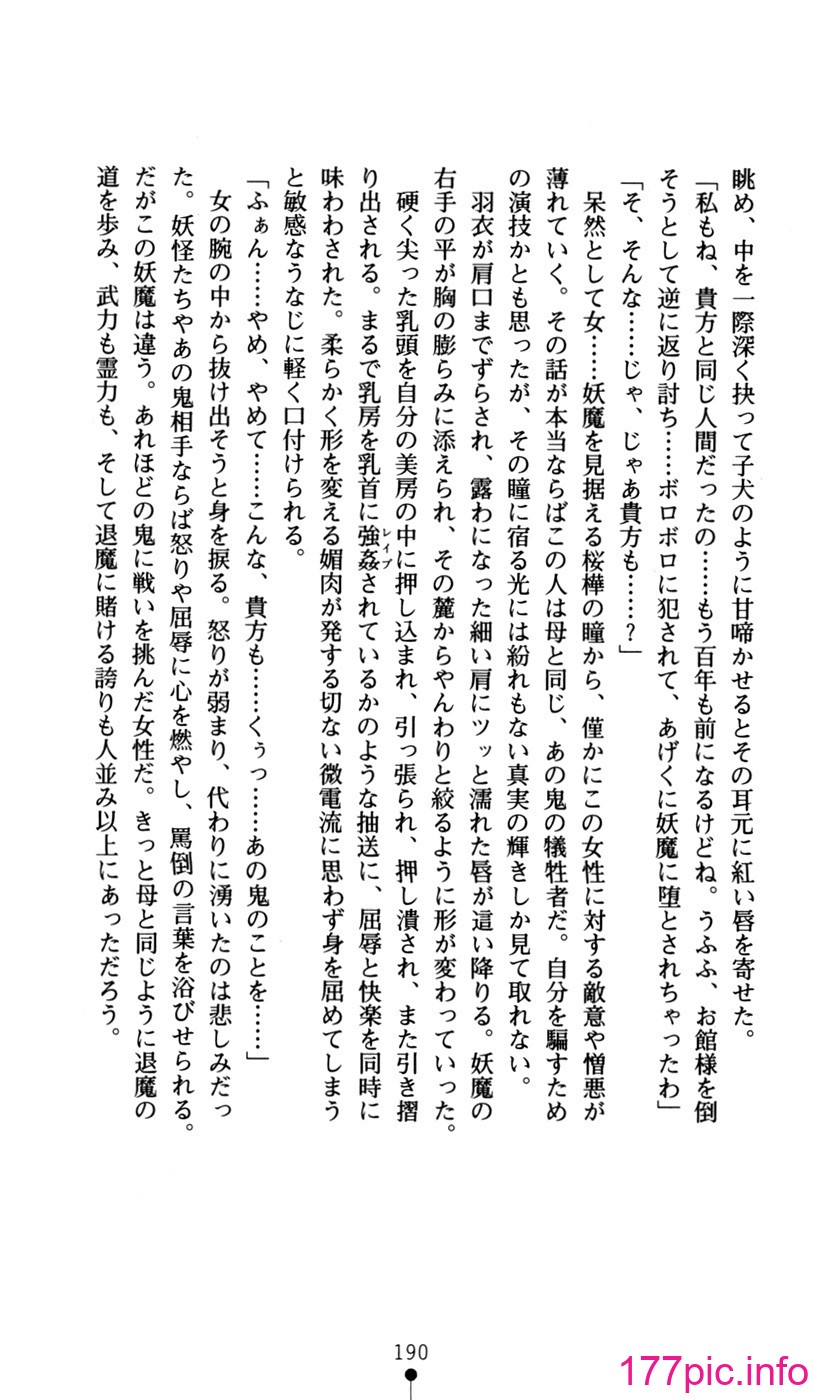 眺め、中を一際深く抉って子犬のように甘啼かせるとその耳元に紅い唇を寄せた。
「私もね、貴方と同じ人間だったの……もう百年も前になるけどね。うふふ、お館様を倒
そうとして逆に返り討ち……ボロボロに犯されて、あげくに妖魔に堕とされちゃったわ」
「そ、そんな……じゃ、じゃあ貴方も……？」
呆然として女……妖魔を見据える桜樺の瞳から、僅かにこの女性に対する敵意や憎悪が
薄れていく。その話が本当ならばこの人は母と同じ、あの鬼の犠牲者だ。自分を騙すため
の演技かとも思ったが、その瞳に宿る光には紛れもない真実の輝きしか見て取れない。
羽衣が肩口までずらされ、露わになった細い肩にツッと濡れた唇が這い降りる。妖魔の
右手の平が胸の膨らみに添えられ、その麓からやんわりと絞るように形が変わっていった。
硬く尖った乳頭を自分の美房の中に押し込まれ、引っ張られ、押し潰され、また引き摺
り出される。まるで乳房を乳首に強姦レイプされているかのような抽送に、屈辱と快楽を同時に
味わわされた。柔らかく形を変える媚肉が発する切ない微電流に思わず身を屈めてしまう
と敏感なうなじに軽く口付けられる。
「ふぁん……やめ、やめて……こんな、貴方も……くぅっ……あの鬼のことを……」
女の腕の中から抜け出そうと身を捩る。怒りが弱まり、代わりに湧いたのは悲しみだっ
た。妖怪たちやあの鬼相手ならば怒りや屈辱に心を燃やし、罵倒の言葉を浴びせられる。
だがこの妖魔は違う。あれほどの鬼に戦いを挑んだ女性だ。きっと母と同じように退魔の
道を歩み、武力も霊力も、そして退魔に賭ける誇りも人並み以上にあっただろう。
190
177pic.info